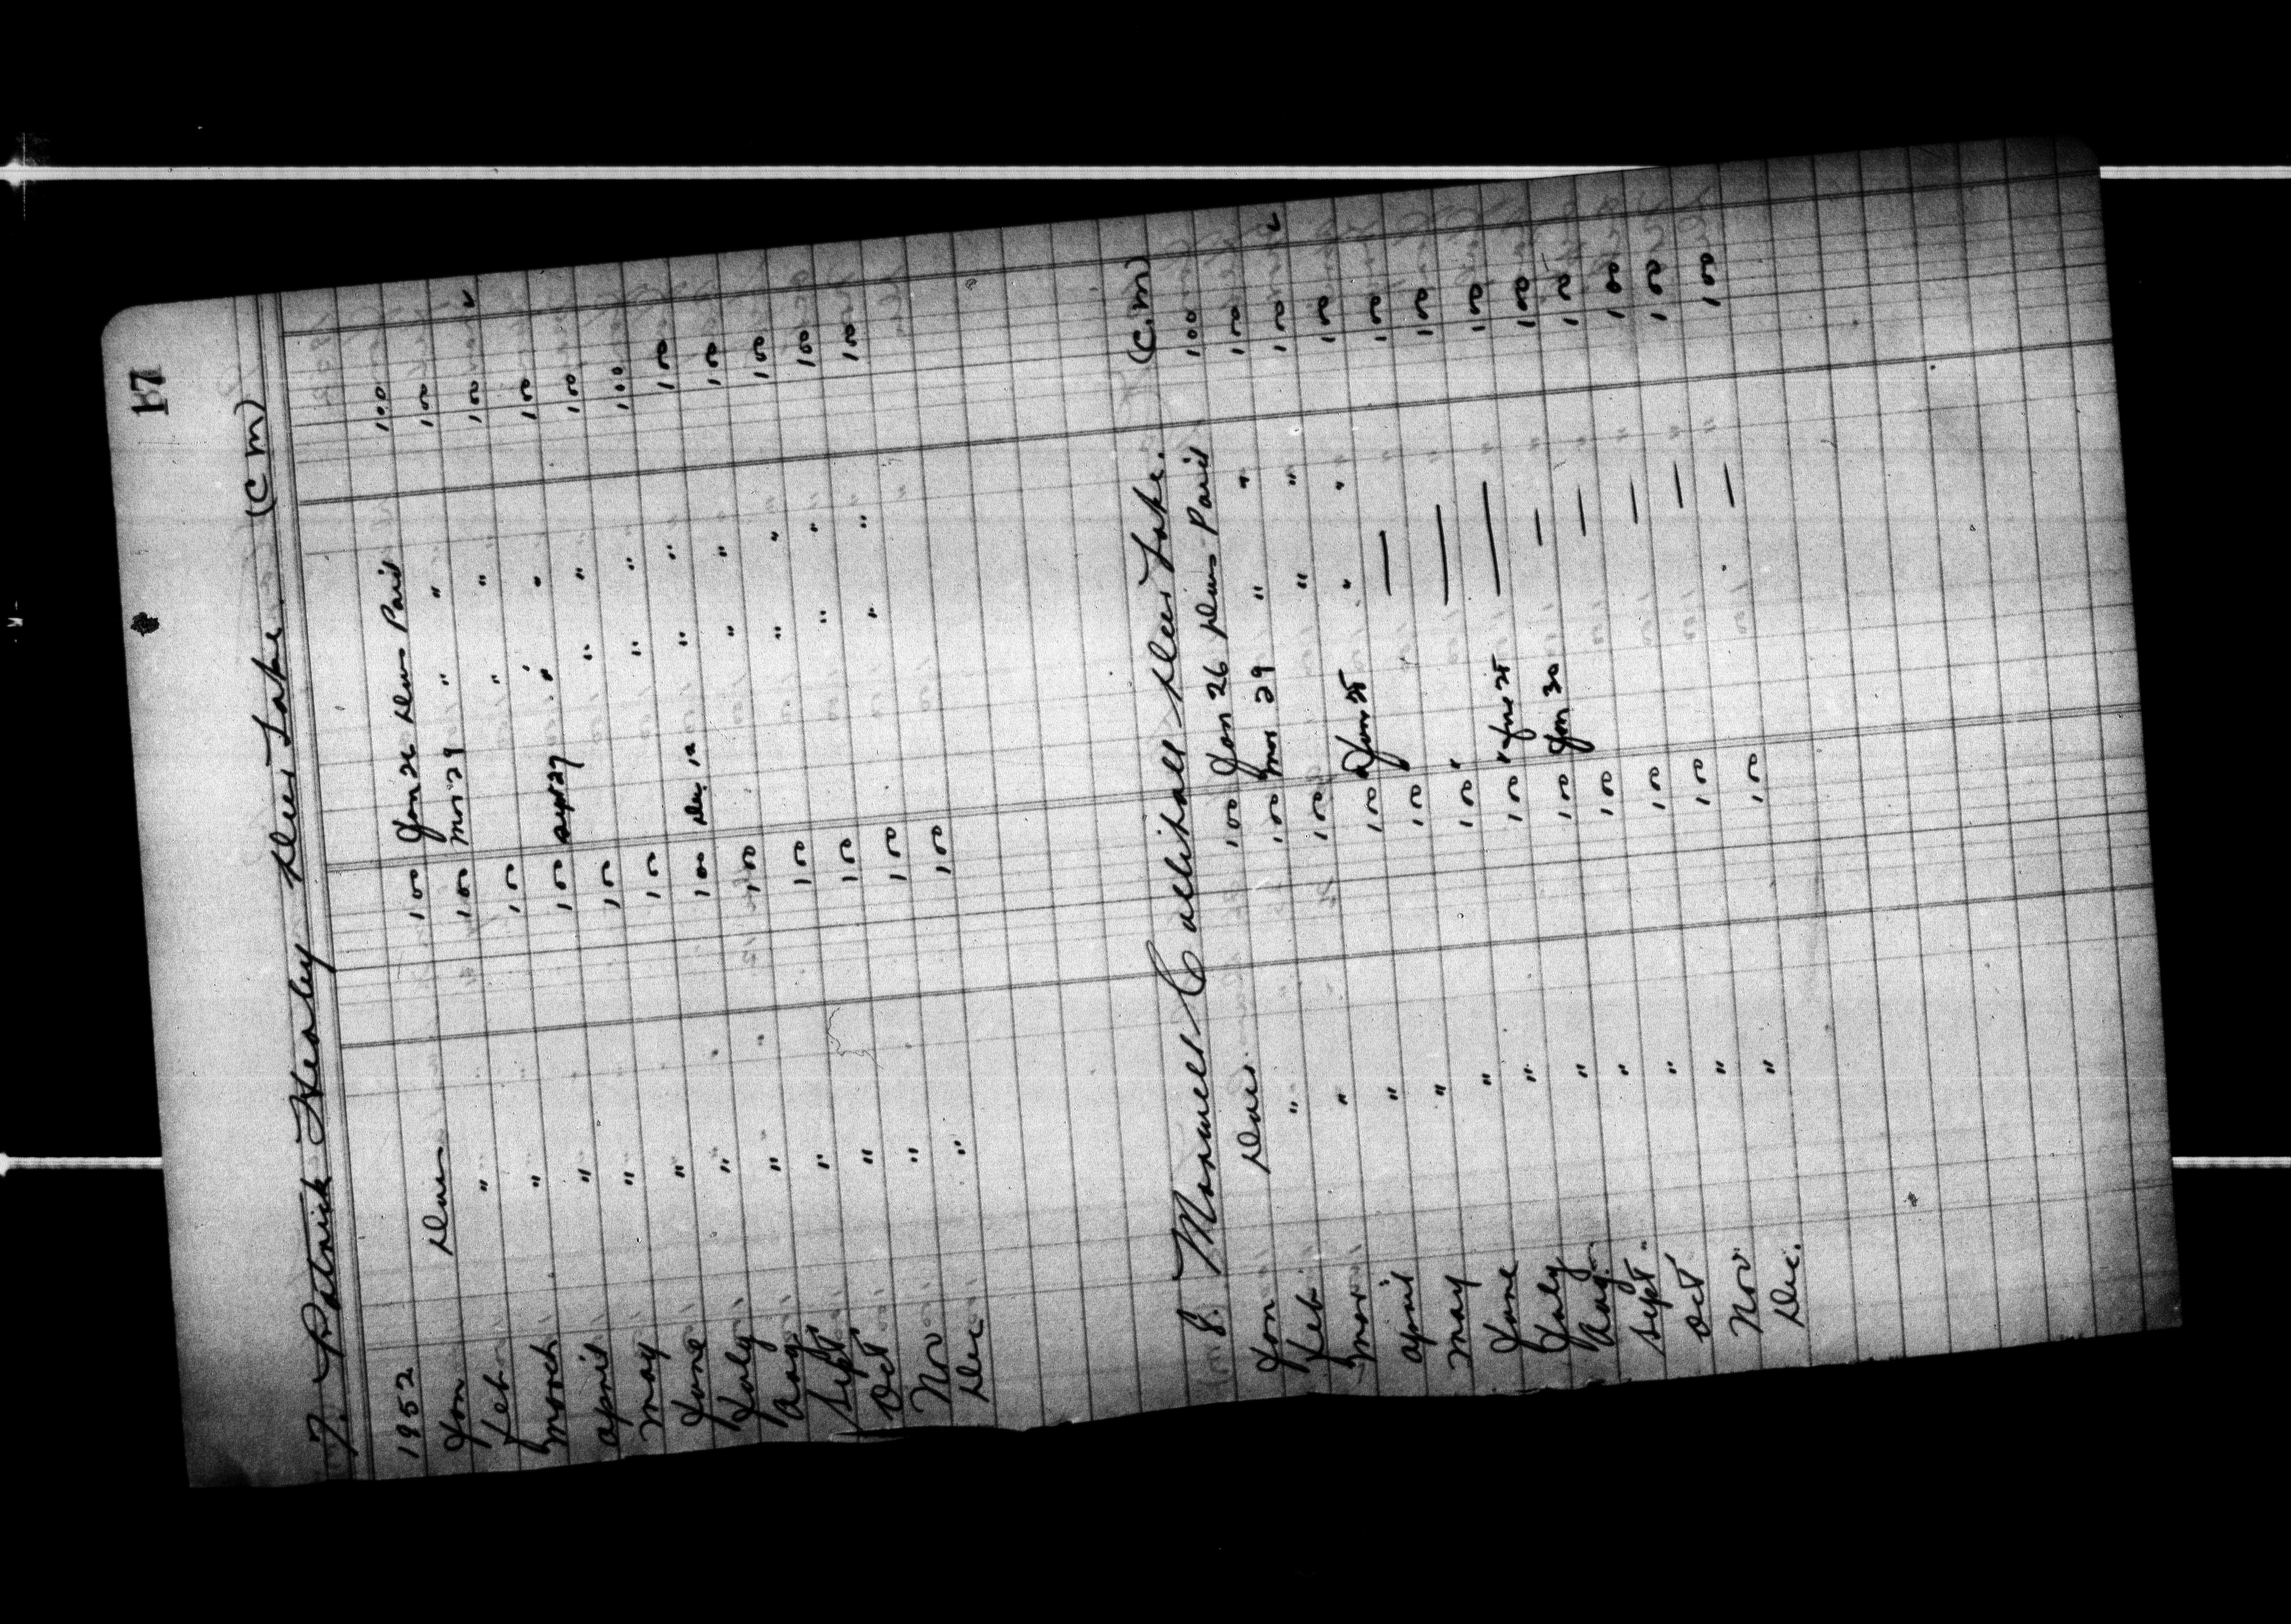 17
7. Patrick Healey Deer Lake. (C M)
1952
Jan Dues 100 Jan 26 Dues Paid 100
Feb " 100 Mar 29 " " 100
March " 100 " " 100 ✓
April " 100 Sept 27 " " 100
May " 100 " " 100
June " 100 " " 100
July " 100 Dec 12 " " 100
Aug " 100 " " 100
Sept " 100 " " 100
Oct " 100 " " 100
Nov " 100 " " 100
Dec " 100
8. Maxwell Callihall Deer Lake. (C.M)
Jan Dues. 100 Jan 26 Dues Paid 100
Feb. " 100 Mar 29 " " 100
Mar " 100 " " 100 ✓
April " 100 25 " " 100
May " 100 — 100
June " 100 " — 100
July " 100 " 25 — 100
Aug. " 100 Jan 30 — 100
Sept. " 100 — 100
Oct " 100 — 100
Nov " 100 — 100
Dec. " 100 — 100